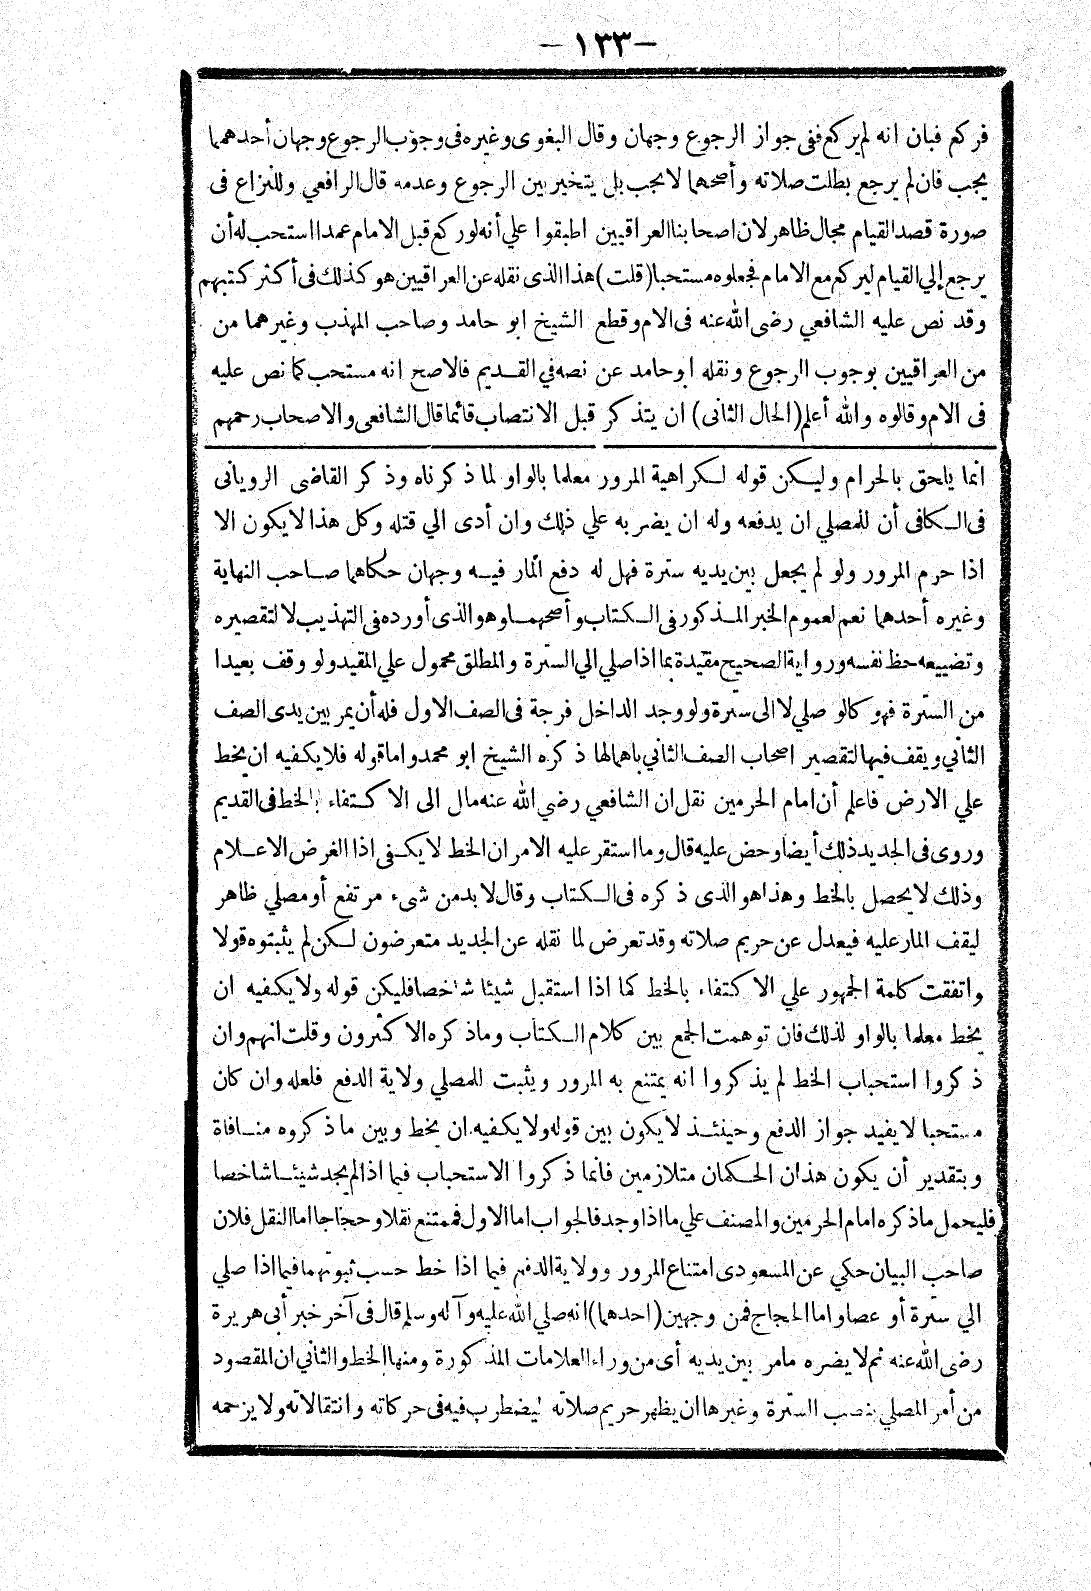 — ١٣٣ —
فركع فبان انه لم يركع ففى جواز الرجوع وجهان وقال البغوى وغيره فى وجوب الرجوع وجهان أحدهما
يجب فان لم يرجع بطلت صلاته وأصحهما لا يجب بل يتخير بين الرجوع وعدمه قال الرافعي وللنزاع فى
صورة قصد القيام مجال ظاهر لان اصحابنا العراقيين اطبقوا علي أنه لو ركع قبل الامام عمدا استحب له أن
يرجع إلي القيام ليركع مع الامام فجعلوه مستحبا (قلت) هذا الذى نقله عن العراقيين هو كذلك فى أكثر كتبهم
وقد نص عليه الشافعي رضى الله عنه فى الام وقطع الشيخ ابو حامد وصاحب المهذب وغيرهما من
من العراقيين بوجوب الرجوع ونقله ابو حامد عن نصه في القديم فالاصح انه مستحب كما نص عليه
فى الام وقالوه والله أعلم (الحال الثانى) ان يتذكر قبل الانتصاب قائما قال الشافعى والاصحاب رحمهم
انما يلحق بالحرام وليكن قوله لكراهية المرور معلما بالواو لما ذكرناه وذكر القاضى الرويانى
فى الكافى أن للمصلي ان يدفعه وله ان يضربه علي ذلك وان أدى الي قتله وكل هذا لا يكون الا
اذا حرم المرور ولو لم يجعل بين يديه سترة فهل له دفع المار فيه وجهان حكاهما صاحب النهاية
وغيره أحدهما نعم لعموم الخبر المذكور فى الكتاب وأصحهما وهو الذى أورده فى التهذيب لا لتقصيره
وتضييعه حظ نفسه ورواية الصحيح مقيدة بما اذا صلي الي السترة والمطلق محمول علي المقيد ولو وقف بعيدا
من السترة فهو كالو صلي لا الى سترة ولو وجد الداخل فرجة فى الصف الاول فله أن يمر بين يدى الصف
الثاني ويقف فيها لتقصير اصحاب الصف الثاني باهمالها ذكره الشيخ ابو محمد واما قوله فلا يكفيه ان يخط
علي الارض فاعلم أن امام الحرمين نقل ان الشافعي رضي الله عنه مال الى الاكتفاء بالخط فى القديم
وروى فى الجديد ذلك أيضا وحض عليه قال وما استقر عليه الامر ان الخط لا يكفى اذا الغرض الاعلام
وذلك لا يحصل بالخط وهذا هو الذى ذكره فى الكتاب وقال لا بد من شىء مرتفع أو مصلي ظاهر
ليقف المار عليه فيعدل عن حريم صلاته وقد تعرض لما نقله عن الجديد متعرضون لكن لم يثبتوه قولا
واتفقت كلمة الجمهور علي الاكتفاء بالخط كما اذا استقبل شيئا شاخصا فليكن قوله ولا يكفيه ان
يخط معلما بالواو لذلك فان توهمت الجمع بين كلام الكتاب وما ذكره الاكثرون وقلت انهم وان
ذكروا استحباب الخط لم يذكروا انه يمتنع به المرور ويثبت للمصلي ولاية الدفع فلعله وان كان
مستحبا لا يفيد جواز الدفع وحينئذ لا يكون بين قوله ولا يكفيه ان يخط وبين ما ذكروه منافاة
وبتقدير أن يكون هذان الحكمان متلازمين فانما ذكروا الاستحباب فيما اذا لم يجد شيئا شاخصا
فليحمل ما ذكره امام الحرمين والمصنف علي ما اذا وجد فالجواب اما الاول فممتنع نقلا وحجاجا اما النقل فلان
صاحب البيان حكي عن المسعودى امتناع المرور وولاية الدفع فيما اذا خط حسب ثبوتهما فيما اذا صلي
الي سترة أو عصا واما الحجاج فمن وجهين (احدهما) انه صلي الله عليه وآله وسلم قال فى آخر خبر أبى هريرة
رضى الله عنه ثم لا يضره ما مر بين يديه أى من وراء العلامات المذكورة ومنها الخط والثاني ان المقصود
من أمر المصلي بنصب السترة وغيرها ان يظهر حريم صلاته ليضطرب فيه فى حركاته وانتقالاته ولا يزحمه